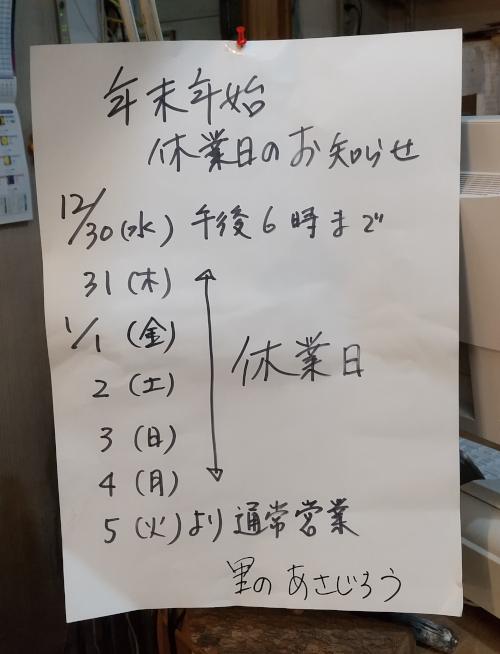 年末年始
休業日のお知らせ
12/30(水) 午後6時まで
31(木)
1/1(金)
2(土)
休業日
3(日)
4(月)
5(火)より通常営業
里のあさじろう